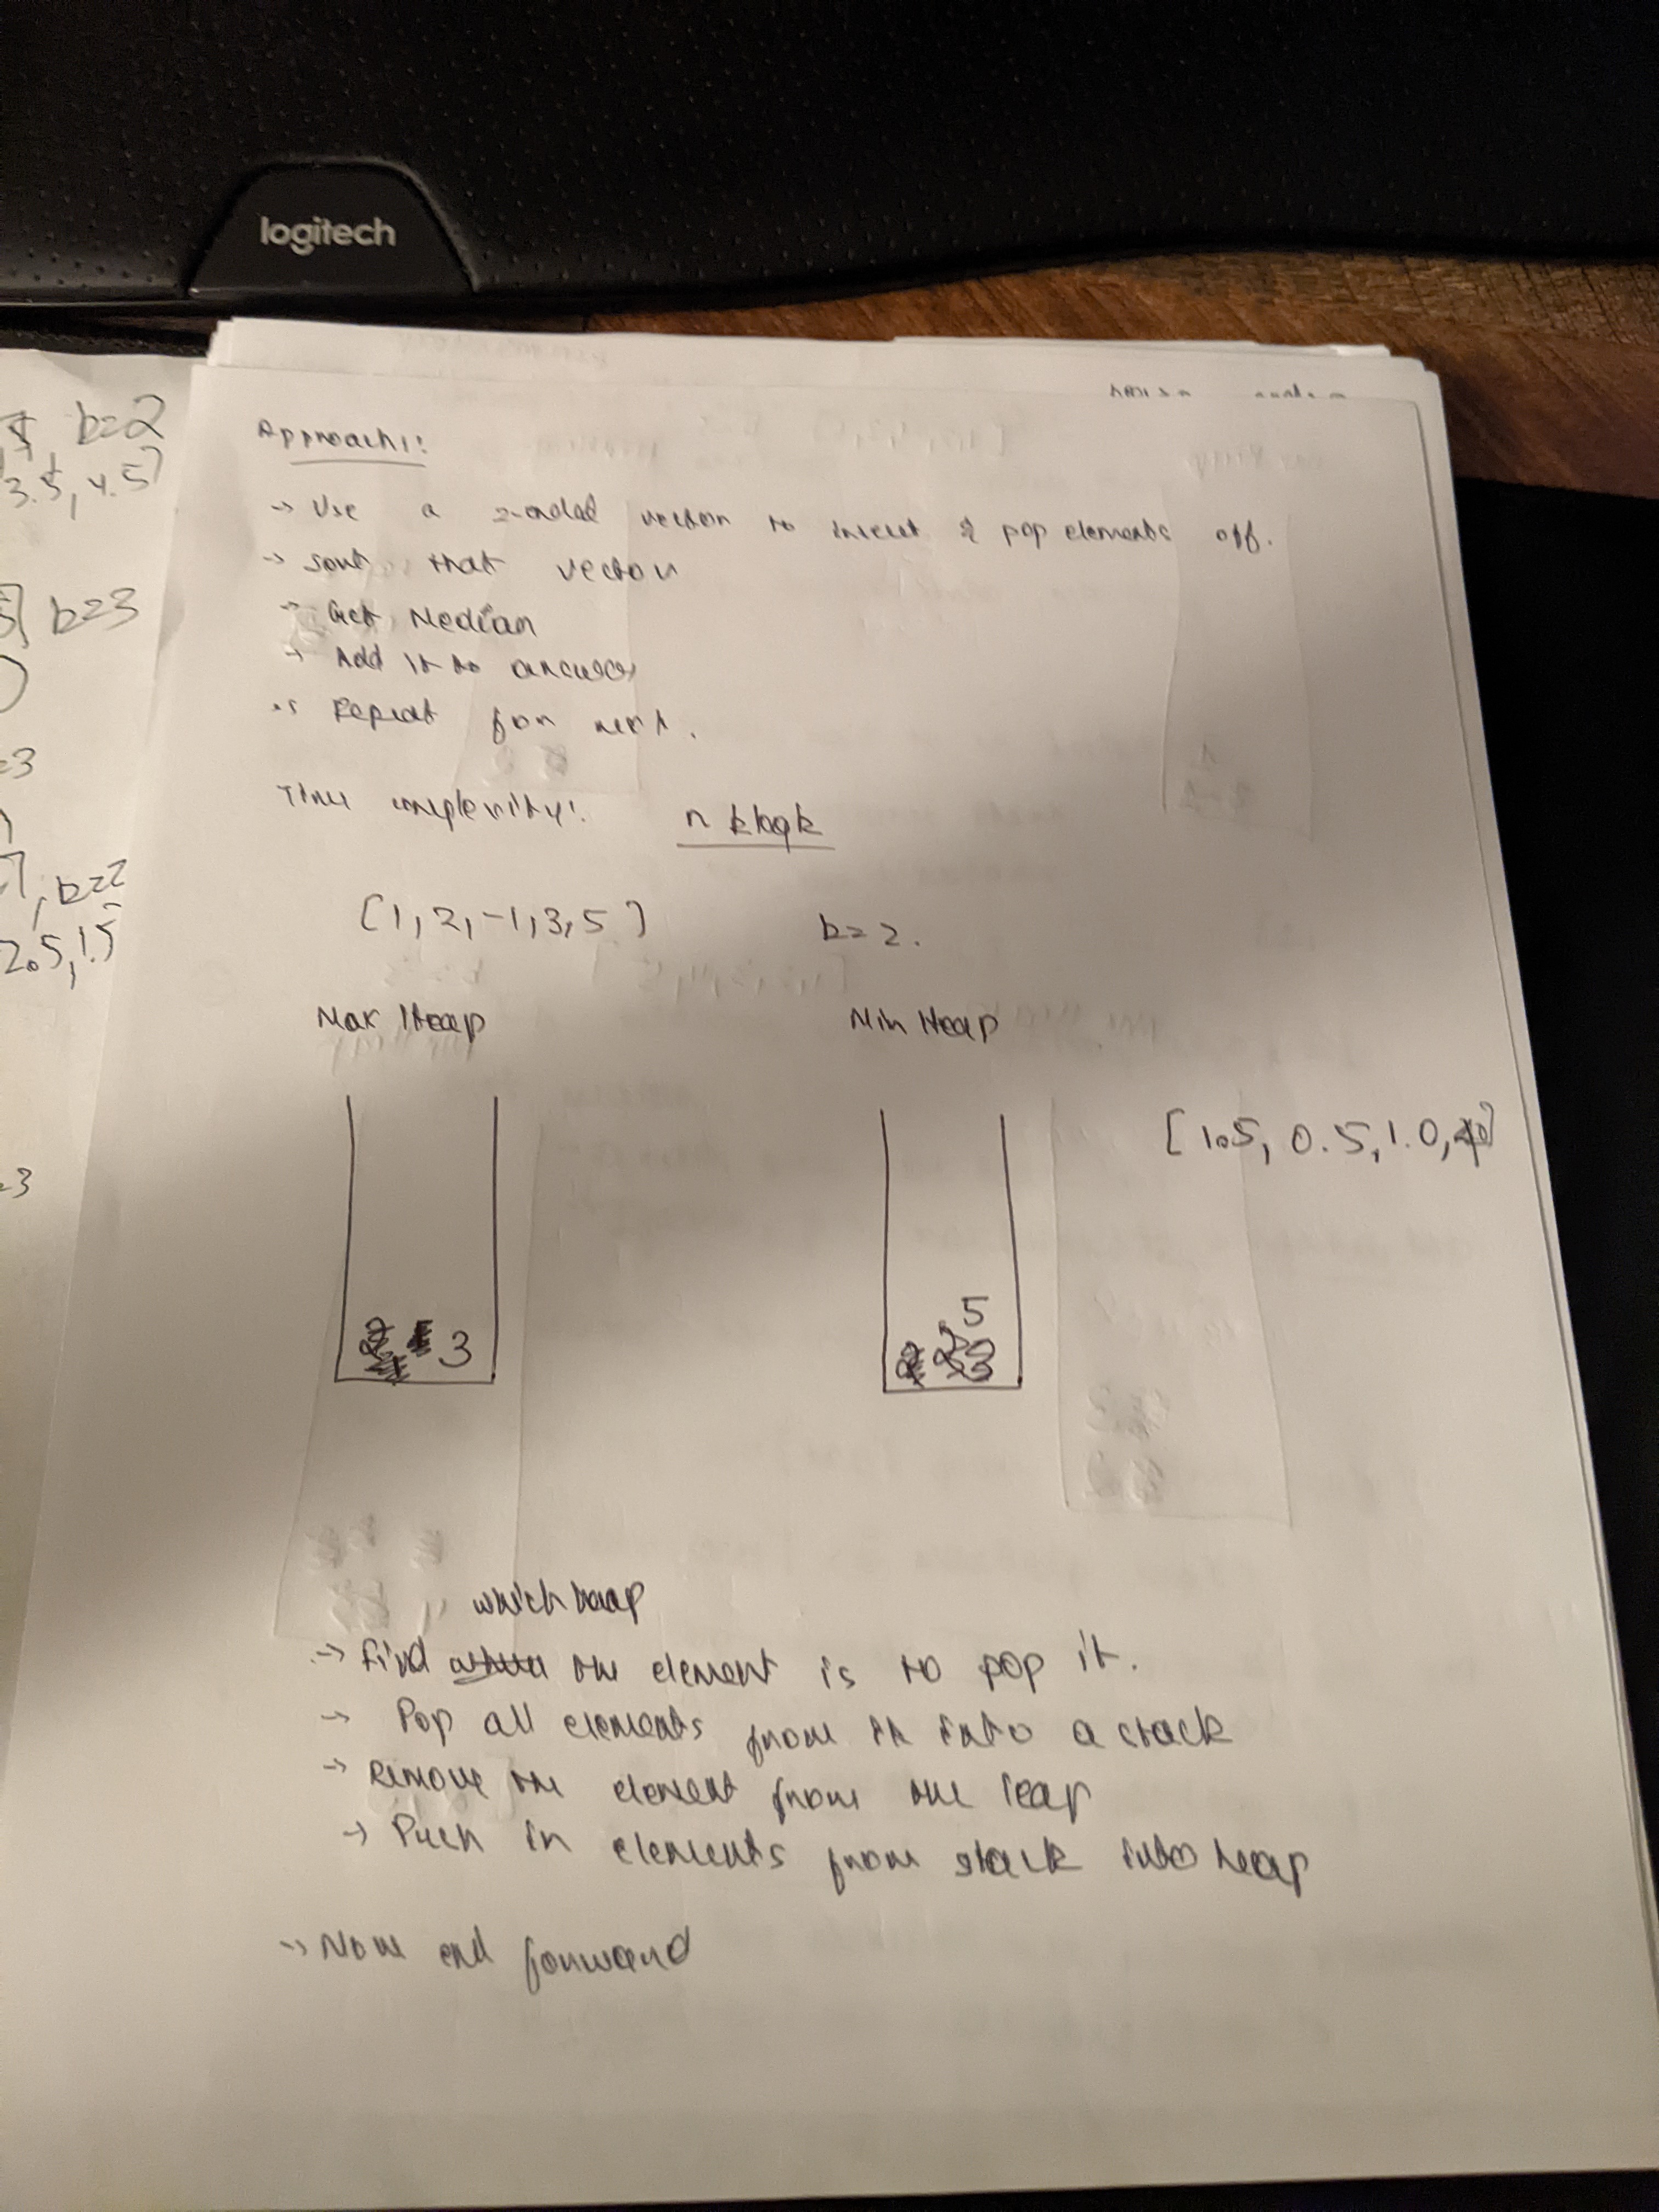 logitech
b=2
3.5, 4.5]
b=3
=3
], b=2
2.5, 1.5
=3
Approach 1:
-> Use a 2-ended vector to insert & pop elements off.
-> sort that vector
-> Get Median
-> Add it to answer
-> Repeat for next.
Time complexity: n klogk
[1, 2, -1, 3, 5] k=2.
Max Heap Min Heap
[1.5, 0.5, 1.0,
3
5
which heap
-> Find the element is to pop it.
-> Pop all elements from it into a stack
-> Remove the element from the heap
-> Push in elements from stack into heap
-> Move end forward